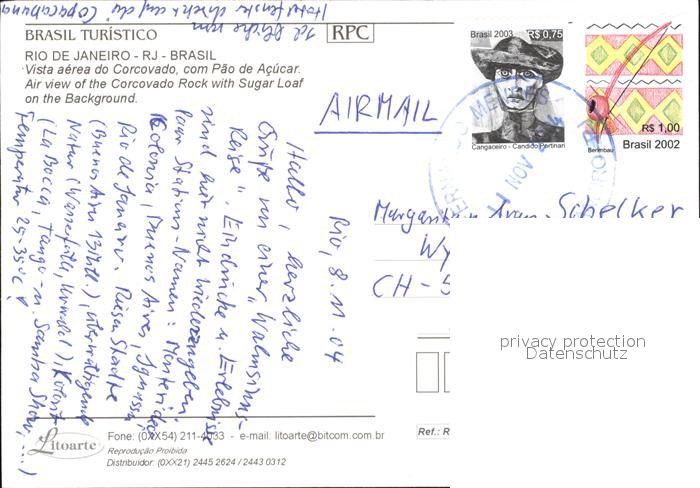 Ich blicke vom
Hotelfenster direkt auf die Copacabana
BRASIL TURÍSTICO
RPC
RIO DE JANEIRO - RJ - BRASIL
Vista aérea do Corcovado, com Pão de Açúcar.
Air view of the Corcovado Rock with Sugar Loaf
on the Background.
AIRMAIL
Brasil 2003 R$ 0,75
Cangaceiro - Candido Portinari
R$ 1,00
Berimbau
Brasil 2002
11 NOV
Rio, 8.11.04
Hallo, herzliche
Grüsse von einer "Wahnsinns-
Reise". Eindrücke u. Erlebnisse
sind fast nicht wiederzugeben.
Paar Stations-Namen: Montevideo
Colonia, Buenos Aires, Iguassu,
Rio de Janairo. Riesen Städte
(Buenos Aires 13 Mill.), überwältigende
Natur (Wasserfälle, Urwald), Kolonial
(La Bocca, Tango- u. Samba Show, ....)
Temperatur 25-35°C!
Margar Schelker
Wy
CH-5
privacy protection
Datenschutz
Litoarte
Fone: (0XX54) 211-4033 - e-mail: litoarte@bitcom.com.br
Reprodução Proibida
Distribuidor: (0XX21) 2445 2624 / 2443 0312
Ref.: R